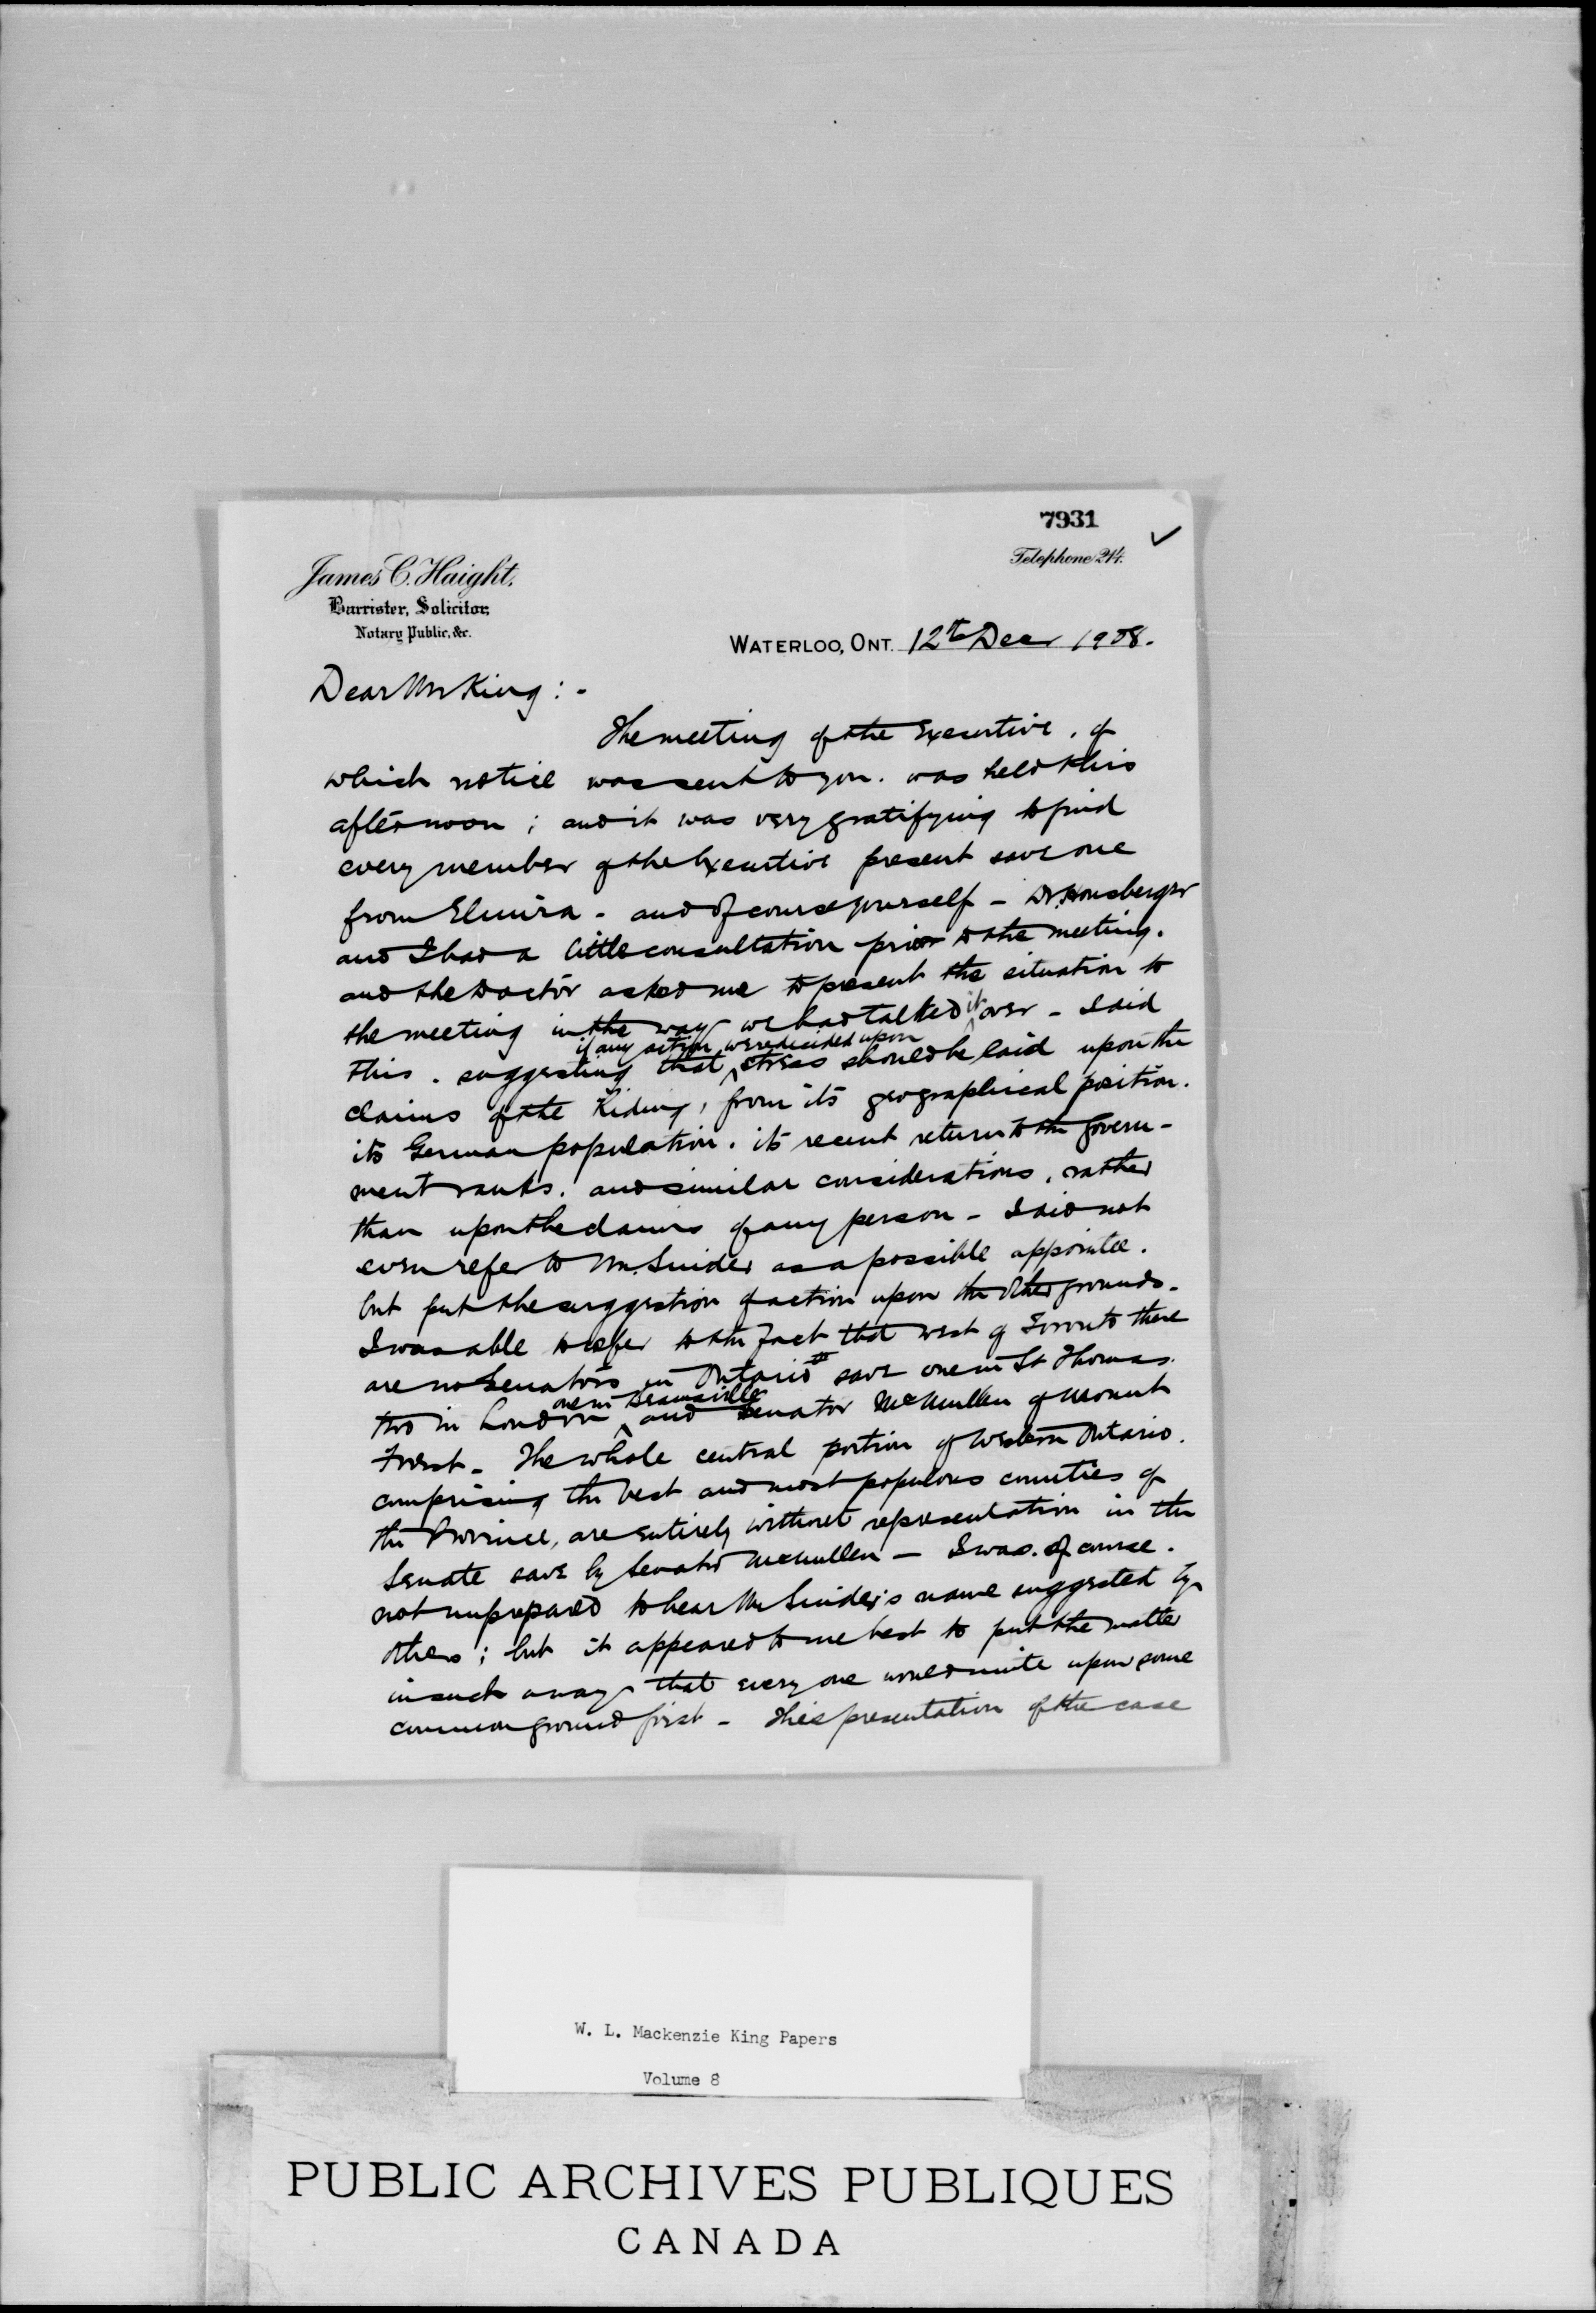 7931
Telephone 214.
James C. Haight,
Barrister, Solicitor,
Notary Public, &c.
WATERLOO, ONT. 12th Decr 1908.
Dear Mr King : -
The meeting of the Executive, of
which notice was sent to you, was held this
afternoon ; and it was very gratifying to find
every member of the Executive present save one
from Elmira - and of course yourself - Dr. Honsberger
and I had a little consultation prior to the meeting,
and the Doctor asked me to present the situation to
the meeting in the way we had talked it over - I did
this, suggesting that if any action were decided upon stress should be laid upon the
claims of the Riding, from its geographical position,
its German population, its recent return to the Govern-
ment ranks, and similar considerations, rather
than upon the claims of any person - I did not
even refer to Mr. Snider as a possible appointee,
but put the suggestion of action upon the other grounds.
I was able to refer to the fact that west of Toronto there
are no Senators in Ontario save one in St Thomas,
two in London one in Beamsville and Senator McMullen of Mount
Forest - The whole central portion of Western Ontario,
comprising the best and most populous counties of
the Province, are entirely without representation in the
Senate save by Senator McMullen - I was, of course,
not unprepared to hear Mr Snider's name suggested by
others ; but it appeared to me best to put the matter
in such a way that every one would unite upon some
common ground first - This presentation of the case
W. L. Mackenzie King Papers
Volume 8
PUBLIC ARCHIVES PUBLIQUES
CANADA